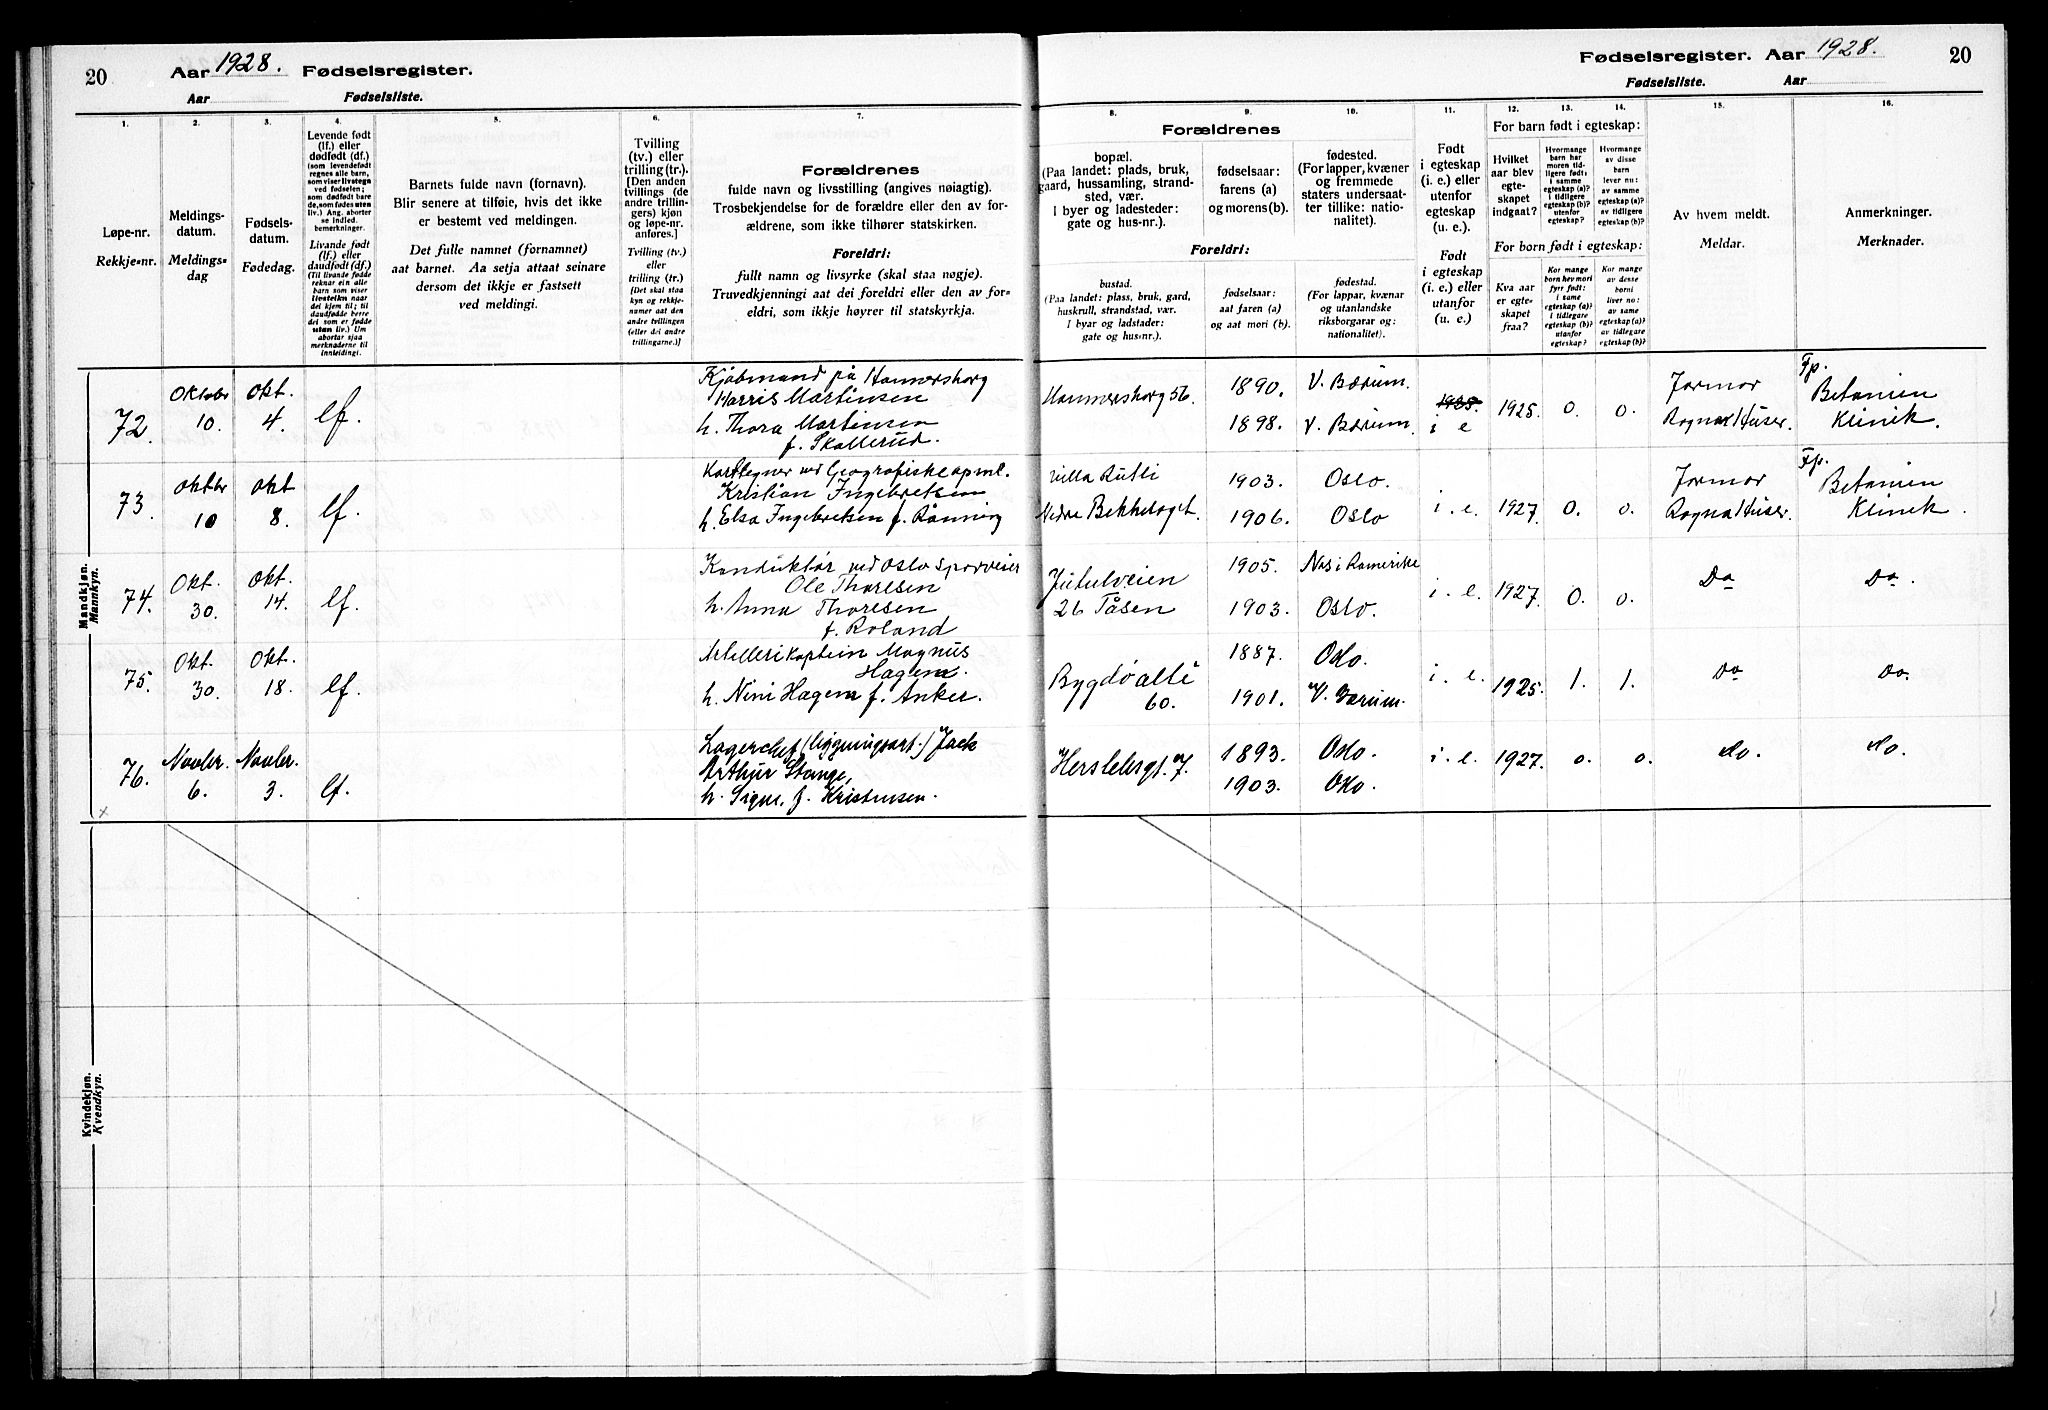 20
Aar 1928. Fødselsregister.
Aar Fødselsliste.
1.
2.
3.
4.
5.
6.
7.
Løpe-nr.
Rekkje=nr.
Meldings-
datum.
Meldings=
dag
Fødsels-
datum.
Fødedag.
Levende født
(lf.) eller
dødfødt (df.)
(som levendefødt
regnes alle barn,
som viser livstegn
ved fødselen;
som dødfødt bare
de, som fødes uten
liv.) Ang. aborter
se indled.
bemerkninger.
Livande født
(lf.) eller
daudfødt (df.)
(Til livande fødde
reknar ein alle
barn som viser
livsteikn naar
dei kjem til; til
daudfødde berre
dei som er fødde
utan liv.) Um
abortar sjaa
merknaderne til
innleidingi.
Barnets fulde navn (fornavn).
Blir senere at tilføie, hvis det ikke
er bestemt ved meldingen.
Det fulle namnet (fornamnet)
aat barnet. Aa setja attaat seinare
dersom det ikkje er fastsett
ved meldingi.
Tvilling
(tv.) eller
trilling (tr.).
[Den anden
tvillings (de
andre trillin-
gers) kjøn
og løpe-nr.
anføres.]
Tvilling (tv.)
eller
trilling (tr.)
[Det skal staa
kyn og rekkje-
numer aat den
andre tvillingen
(eller dei andre
trillingarne.)]
Forældrenes
fulde navn og livsstilling (angives nøiagtig).
Trosbekjendelse for de forældre eller den av for-
ældrene, som ikke tilhører statskirken.
Foreldri:
fullt namn og livsyrke (skal staa nøgje).
Truvedkjenningi aat dei foreldri eller den av for=
eldri, som ikkje høyrer til statskyrkja.
Mandkjøn.
Mannkyn.
72. Oktober 10. Okt. 4. lf.
Kjøbmand på Hammersborg
Harris Martinsen
h. Thora Martinsen
f. Skollerud.
73. Oktbr 10 Okt 8. lf.
Karttegner ved Geografiske opml.
Kristian Ingebretsen
h. Elsa Ingebretsen f. Rønning
74. Okt. 30. Okt. 14. lf.
Konduktør ved Oslo Sporveier
Ole Thoresen
h. Anna Thoresen
f. Roland
75. Okt. 30. Okt. 18. lf.
Artillerikaptein Magnus
Hagem.
h. Nini Hagem f. Anker.
76. Novbr. 6. Novbr. 3. lf.
Lagerchef (bygningsart.) Jack
Arthur Stange,
h. Signe, f. Kristensen.
Kvindekjøn.
Kvendkyn.
Fødselsregister. Aar 1928. 20
Fødselsliste. Aar
8.
9.
10.
11.
12.
13.
14.
15.
16.
Forældrenes
bopæl.
(Paa landet: plads, bruk,
gaard, hussamling, strand-
sted, vær.
I byer og ladesteder:
gate og hus-nr.).
fødselsaar:
farens (a)
og morens (b).
fødested.
(For lapper, kvæner
og fremmede
staters undersaat-
ter tillike: natio-
nalitet).
Foreldri:
bustad.
(Paa landet: plass, bruk, gard,
huskrull, strandstad, vær.
I byar og ladstader:
gate og hus=nr.).
fødselsaar:
aat faren (a)
og aat mori (b).
fødestad.
(For lappar, kvænar
og utanlandske
riksborgarar og:
nationalitet).
Født
i egteskap
(i. e.) eller
utenfor
egteskap
(u. e.).
Født
i egteskap
(i. e.) eller
utanfor
(u. e.)
For barn født i egteskap:
Hvilket
aar blev
egte-
skapet
indgaat?
Hvormange
barn har
moren tid-
ligere født:
i samme
egteskap (a)?
i tidligere
egteskap (b)?
utenfor
egteskap?
Hvormange
av disse
barn
lever nu:
av samme
egteskap (a)?
av tidligere
egteskap (b)?
For born født i egteskap:
Kva aar
er egte-
skapet
fraa?
Kor mange
born hev mori
fyrr født:
i same
egteskap (a)?
i tidlegare
egteskap (b)?
utanfor
egteskap?
Kor mange
av desse
borni
liver no:
av same
egteskap (a)?
av tidlegare
egteskap (b)?
Av hvem meldt.
Meldar.
Anmerkninger.
Merknader.
Hammersborg 56. 1890. V. Bærum. 1898. V. Bærum. 1925. i e 1925. 0. 0. Jormor Ragna Huser. Fp. Betanien Klinik.
Villa Rutli Nedre Bekkelaget. 1903. Oslo. 1906. Oslo i. e. 1927. 0. 0. Jormor Ragna Huser. Fp. Betanien Klinik.
Jutulveien 26 Tåsen 1905. Nes i Romerike 1903. Oslo. i. e. 1927. 0. 0. Do Do.
Bygdø allé 60. 1887. Oslo. 1901. V. Bærum. i. e. 1925. 1. 1. Do Do.
Herslebsgt. 7. 1893. Oslo. 1903. Oslo. i. e. 1927. 0. 0. do. do.